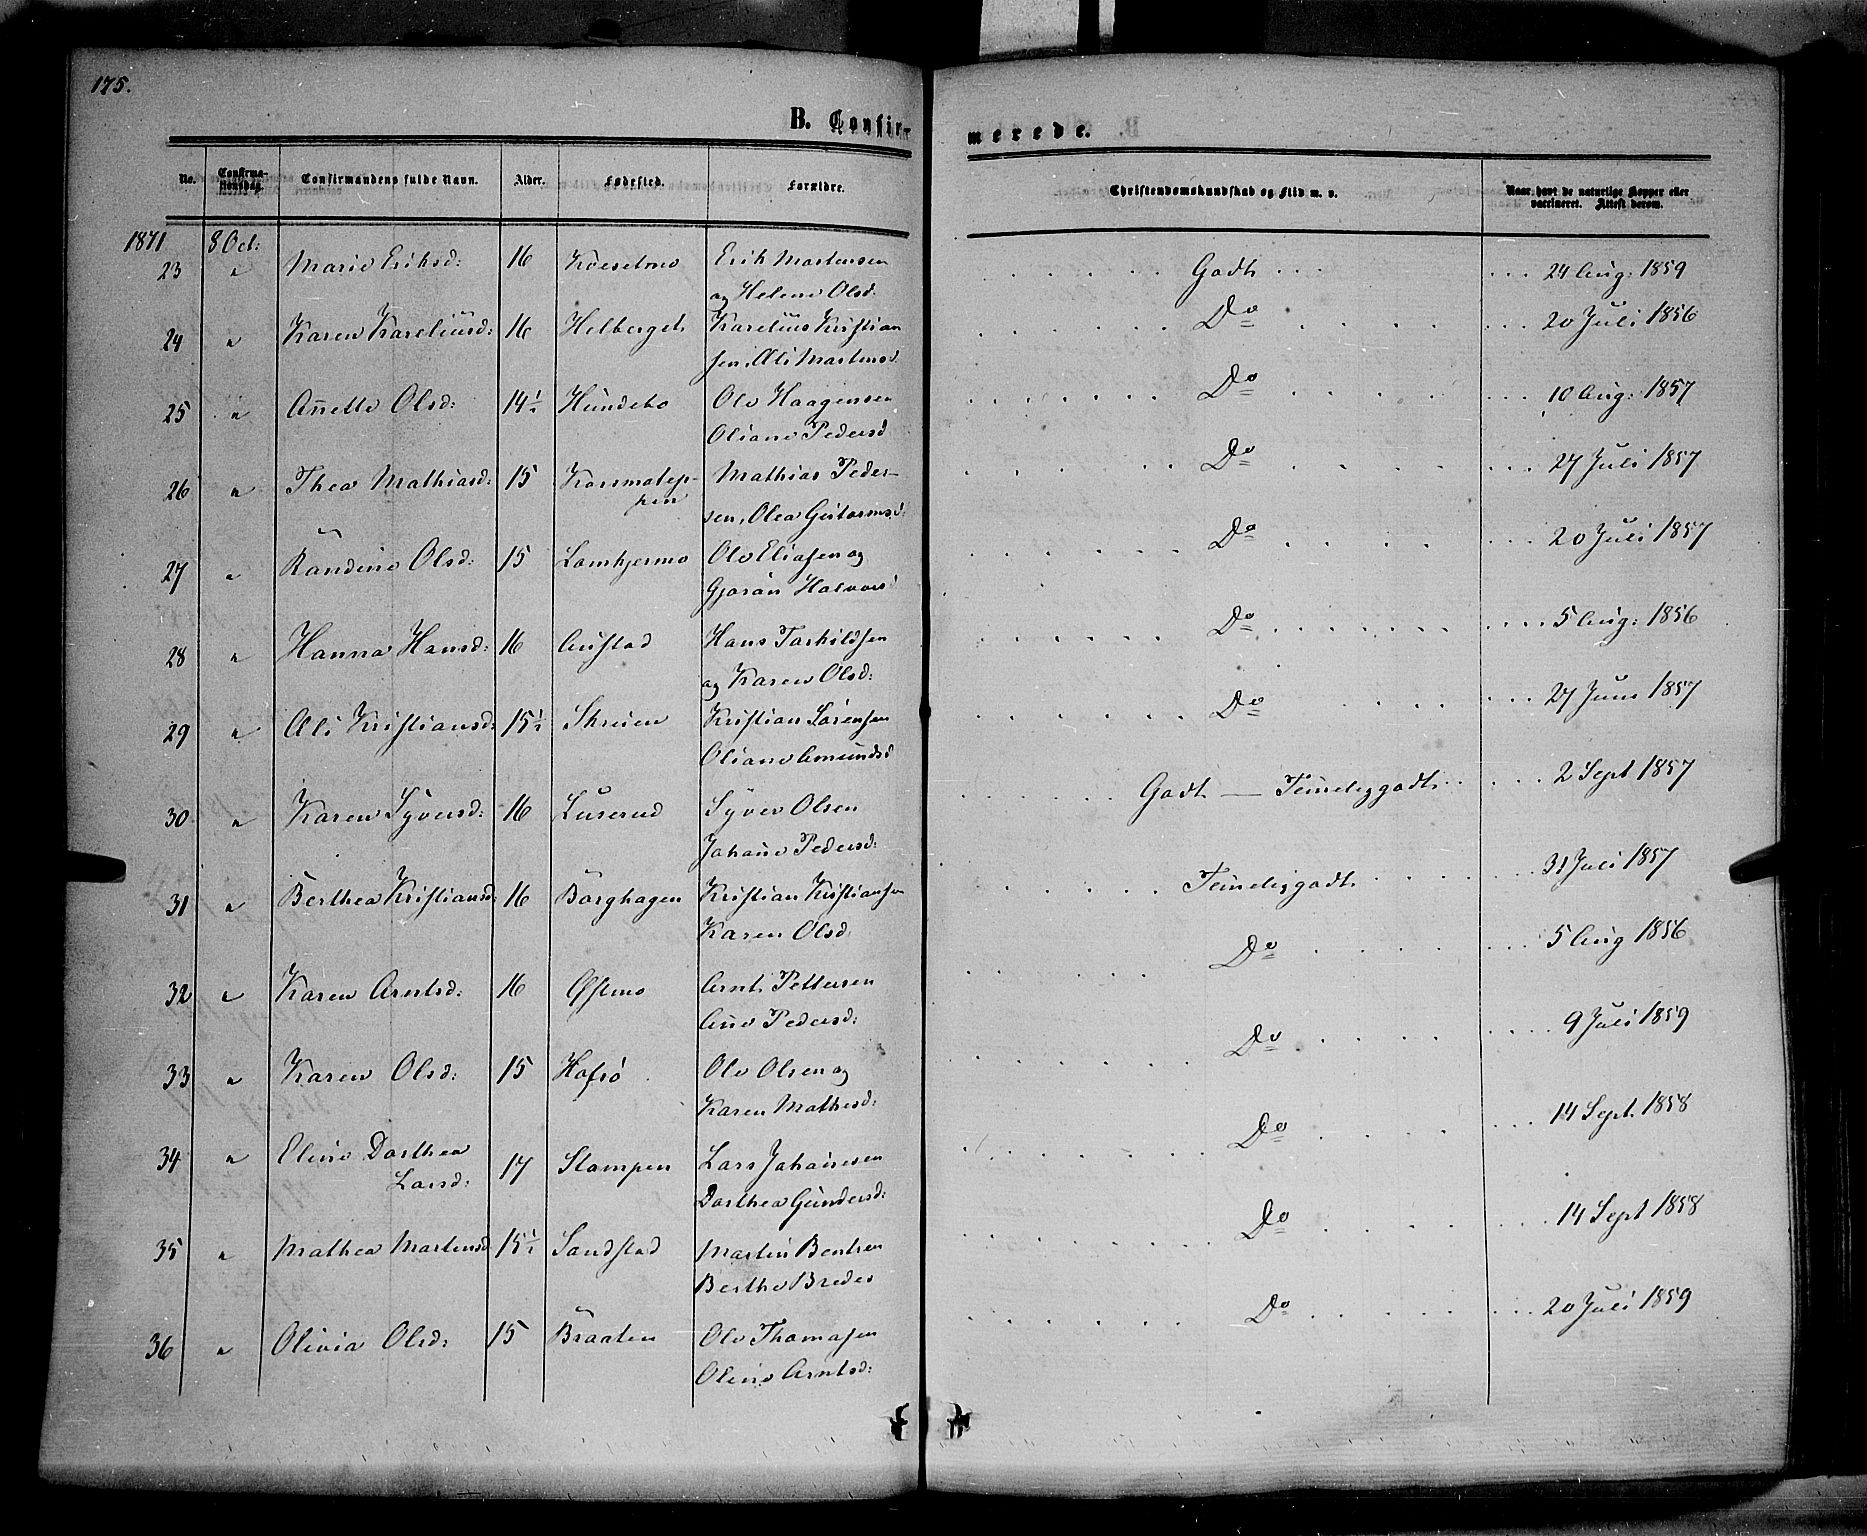 175.
B. Confirmerede.
No. Confirmationsdag. Confirmandens fulde Navn. Alder. Fødested. Forældre. Christendomskundskab og Flid m. v. Naar havt de naturlige Kopper eller vaccineret. Attest derom.
1871 8 Oct:
23 " Marie Eriksd: 16 Erik Martensen Godt 24 Aug: 1859
og Helene Olsd.
24 " Karen Kareliusd: 16 Helberget Karelius Kristian Do 20 Juli 1856
sen, Oli Martensd
25 " Anette Olsd: 14½ Hundebo Ole Haagensen Do 10 Aug: 1857
Oliane Pedersd
26 " Thea Mathiasd: 15 Mathias Peder- Do 27 Juli 1857
sen, Olea Guttormsd:
27 " Randine Olsd: 15 Lamkjermo Ole Eliasen og Do 20 Juli 1857
Gjøran Halvors
28 " Hanna Hansd: 16 Austad Hans Torkildsen Do 5 Aug: 1856
og Karen Olsd:
29 " Oli Kristiansd: 15½ Skruen Kristian Sørensen Do 27 Juni 1857
Oliane Amundsd
30 " Karen Syversd: 16 Luserud Syver Olsen Godt — Temeliggodt 2 Sept 1857
Johane Pedersd:
31 " Berthea Kristiansd: 16 Borghagen Kristian Kristiansen Temeliggodt 31 Juli 1857
Karen Olsd
32 " Karen Arntsd: 16 Østmo Arnt Pettersen Do 5 Aug 1856
Ane Pedersd:
33 " Karen Olsd: 15 Hofsø Ole Olsen og Do 9 Juli 1859
Karen Mathesd:
34 " Eline Dorthea 17 Stampen Lars Johansen Do 14 Sept. 1858
Larsd: Dorthea Gundersd:
35 " Mathea Martensd 15½ Sandstad Martin Bentsen Do 14 Sept 1858
Berthe Brede
36 " Olivia Olsd: 15 Braaten Ole Thomasen Do 20 Juli 1859
Oline Arntsd: